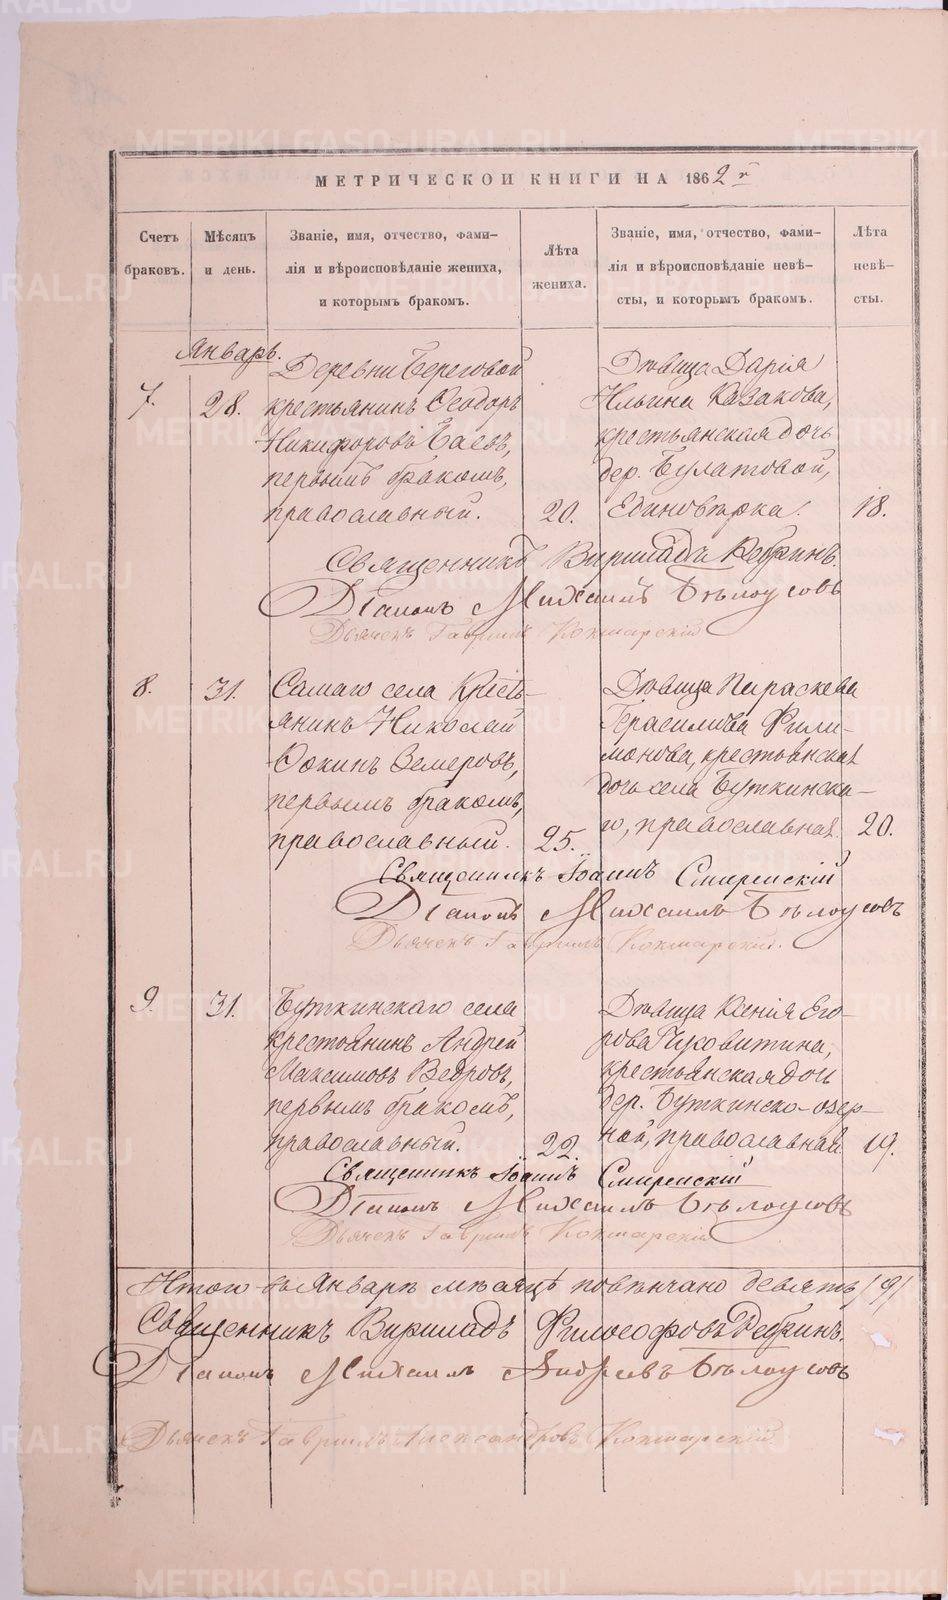 МЕТРИЧЕСКОЙ КНИГИ НА 1862 г
Счетъ браковъ.
Мѣсяцъ и день.
Званіе, имя, отчество, фами-
лія и вѣроисповѣданіе жениха,
и которымъ бракомъ.
Лѣта жениха.
Званіе, имя, отчество, фами-
лія и вѣроисповѣданіе невѣ-
сты, и которымъ бракомъ.
Лѣта невѣ-
сты.
Январь.
7. 28.
Деревни Береговой
крестьянинъ Ѳеодоръ
Никифоровъ
первымъ бракомъ,
православный.
20.
Дѣвица Дарія
Ильина Казакова,
крестьянская дочь
дер. Булатовой,
Единовѣрка.
18.
Священникъ Вирилладъ Ребринъ.
Діаконъ Михаилъ Бѣлоусовъ
Дьячекъ Гавриилъ Кокшарскій
8. 31.
Самаго села Кресть-
янинъ Николай
Ѳокинъ Семеровъ,
первымъ бракомъ,
православный.
25.
Дѣвица Параскева
Герасимова Фили-
монова, крестьянская
дочь села Буткинска-
го, православная.
20.
Священникъ Іоаннъ Смиренскій
Діаконъ Михаилъ Бѣлоусовъ
Дьячекъ Гавриилъ Кокшарскій.
9. 31.
Буткинскаго села
крестьянинъ Андрей
Максимовъ Ведровъ,
первымъ бракомъ,
православный.
22.
Дѣвица Ксенія Его-
рова Чуковитина,
крестьянская дочь
дер. Буткинско-озер-
ной, православная
19.
Священникъ Іоаннъ Смиренскій
Діаконъ Михаилъ Бѣлоусовъ
Дьячекъ Гавриилъ Кокшарскій
Итого въ Январѣ мѣсяцѣ повѣнчано девять /9/
Священникъ Вирилладъ Философовъ Ребринъ.
Діаконъ Михаилъ Андреевъ Бѣлоусовъ
Дьячекъ Гавриилъ Александровъ Кокшарскій
METRIKI.GASO-URAL.RU